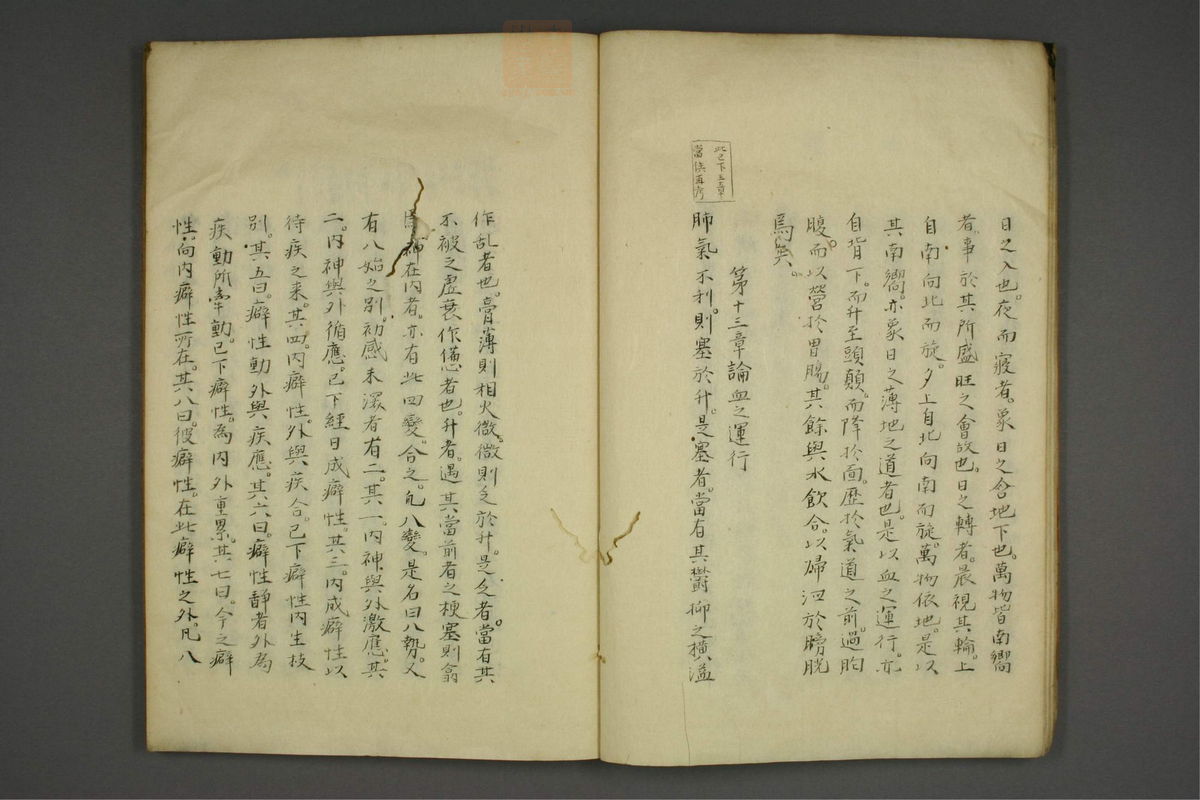 日之入也。夜而寢者。象日之含地下也。萬物皆南嚮
者。事於其所盛旺之會故也。日之轉者。晨視其輪。上
自南向北而旋。夕上自北向南而旋。萬物依地。是以
其南嚮。亦象日之薄地之道者也。是以血之運行。亦
自背下。而升至頭顛。而降於面。歷於氣道之前。過胸
腹。而以營於胃腸。其餘與水飲合。以歸泗於膀胱
焉矣。
第十三章論血之運行
此已下三章
當俟再考
肺氣不利。則塞於升。是塞者。當有其欝抑之横溢
作乱者也。膏薄則相火微。微則乏於升。是乏者。當有其
不被之虛衰作憊者也。升者。遇其當前者之梗塞則翕
焉。神在内者。亦有此四變。合之。凡八變。是名曰八勢。又
有八始之別。初感未深者有二。其一。内神與外激應。其
二。内神與外循應。已下經日成癖性。其三。内成癖性以
待疾之来。其四。内癖性。外與疾合。已下癖性内生枝
別。其五曰。癖性動外與疾應。其六曰。癖性静者外為
疾動所牽動。已下癖性。為内外重累。其七曰。今之癖
性。向内癖性所在。其八曰。彼癖性。在此癖性之外。凡八